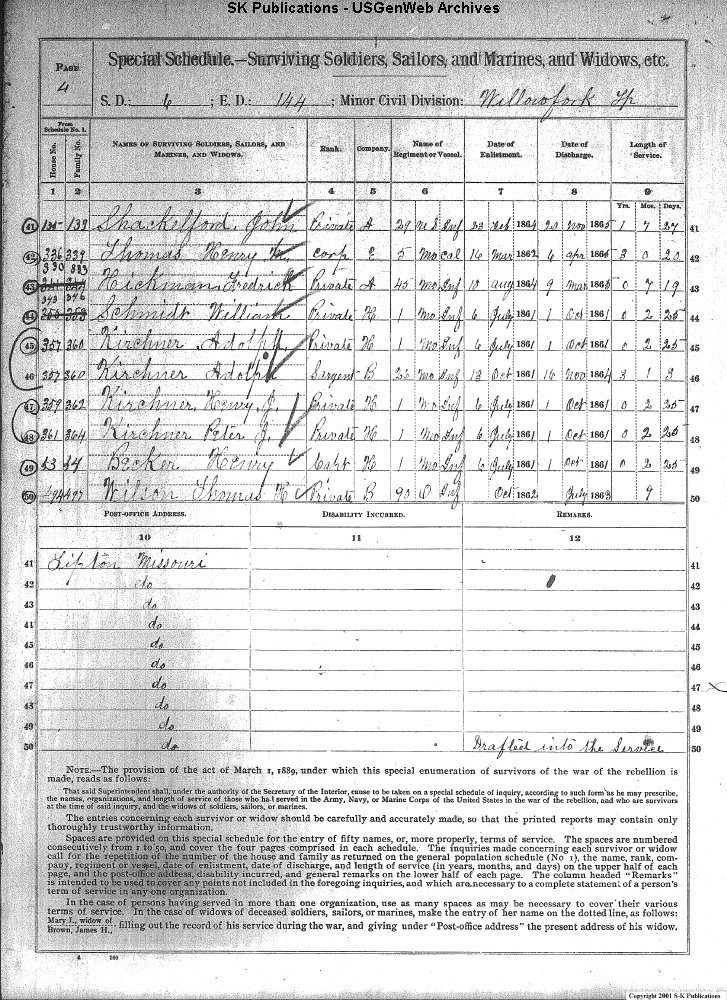 SK Publications - USGenWeb Archives
PAGE
4
Special Schedule.—Surviving Soldiers, Sailors, and Marines, and Widows, etc.
S. D.: 6 ; E. D.: 144 ; Minor Civil Division: Willowfork Tp
From Schedule No. 1.
House No. Family No. NAMES OF SURVIVING SOLDIERS, SAILORS, AND MARINES, AND WIDOWS. Rank. Company. Name of Regiment or Vessel. Date of Enlistment. Date of Discharge. Length of Service.
1 2 3 4 5 6 7 8 9
Yrs. Mos. Days.
41 139 Shackelford, John Private A 29 Inf 1864 20 Nov 1865 1 7 27 41
42 336 339 Thomas Henry corp E 5 Mo Cal 16 Mar 1862 6 Apr 1865 3 0 20 42
330 333
43 Hickman Fredrick Private A 45 Mo Inf 10 Aug 1864 9 Mar 1865 0 7 19 43
343 346
44 Schmidt William Private H 1 Mo Inf 6 July 1861 1 Oct 1861 0 2 25 44
45 357 360 Kirchner Adolph Private H 1 Mo Inf 6 July 1861 1 Oct 1861 0 2 25 45
46 357 360 Kirchner Adolph Sargent B 26 Mo Inf 13 Oct 1861 16 Nov 1864 3 1 3 46
47 359 362 Kirchner, Henry J. Private H 1 Mo Inf 6 July 1861 1 Oct 1861 0 2 25 47
48 361 364 Kirchner Peter J. Private H 1 Mo Inf 6 July 1861 1 Oct 1861 0 2 25 48
49 53 54 Becker Henry Capt H 1 Mo Inf 6 July 1861 1 Oct 1861 0 2 25 49
50 494 497 Wilson Thomas H Private B 90 O Inf Oct 1862 July 1863 9 50
POST-OFFICE ADDRESS. DISABILITY INCURRED. REMARKS.
10 11 12
41 Tipton Missouri 41
42 do 42
43 do 43
44 do 44
45 do 45
46 do 46
47 do 47
48 do 48
49 do 49
50 do Drafted into the Service 50
NOTE.—The provision of the act of March 1, 1889, under which this special enumeration of survivors of the war of the rebellion is
made, reads as follows:
That said Superintendent shall, under the authority of the Secretary of the Interior, cause to be taken on a special schedule of inquiry, according to such form as he may prescribe,
the names, organizations, and length of service of those who had served in the Army, Navy, or Marine Corps of the United States in the war of the rebellion, and who are survivors
at the time of said inquiry, and the widows of soldiers, sailors, or marines.
The entries concerning each survivor or widow should be carefully and accurately made, so that the printed reports may contain only
thoroughly trustworthy information.
Spaces are provided on this special schedule for the entry of fifty names, or, more properly, terms of service. The spaces are numbered
consecutively from 1 to 50, and cover the four pages comprised in each schedule. The inquiries made concerning each survivor or widow
call for the repetition of the number of the house and family as returned on the general population schedule (No 1), the name, rank, com-
pany, regiment or vessel, date of enlistment, date of discharge, and length of service (in years, months, and days) on the upper half of each
page, and the post-office address, disability incurred, and general remarks on the lower half of each page. The column headed "Remarks"
is intended to be used to cover any points not included in the foregoing inquiries, and which are necessary to a complete statement of a person's
term of service in any one organization.
In the case of persons having served in more than one organization, use as many spaces as may be necessary to cover their various
terms of service. In the case of widows of deceased soldiers, sailors, or marines, make the entry of her name on the dotted line, as follows:
Mary J., widow of
Brown, James H., filling out the record of his service during the war, and giving under "Post-office address" the present address of his widow.
Copyright 2001 S-K Publications